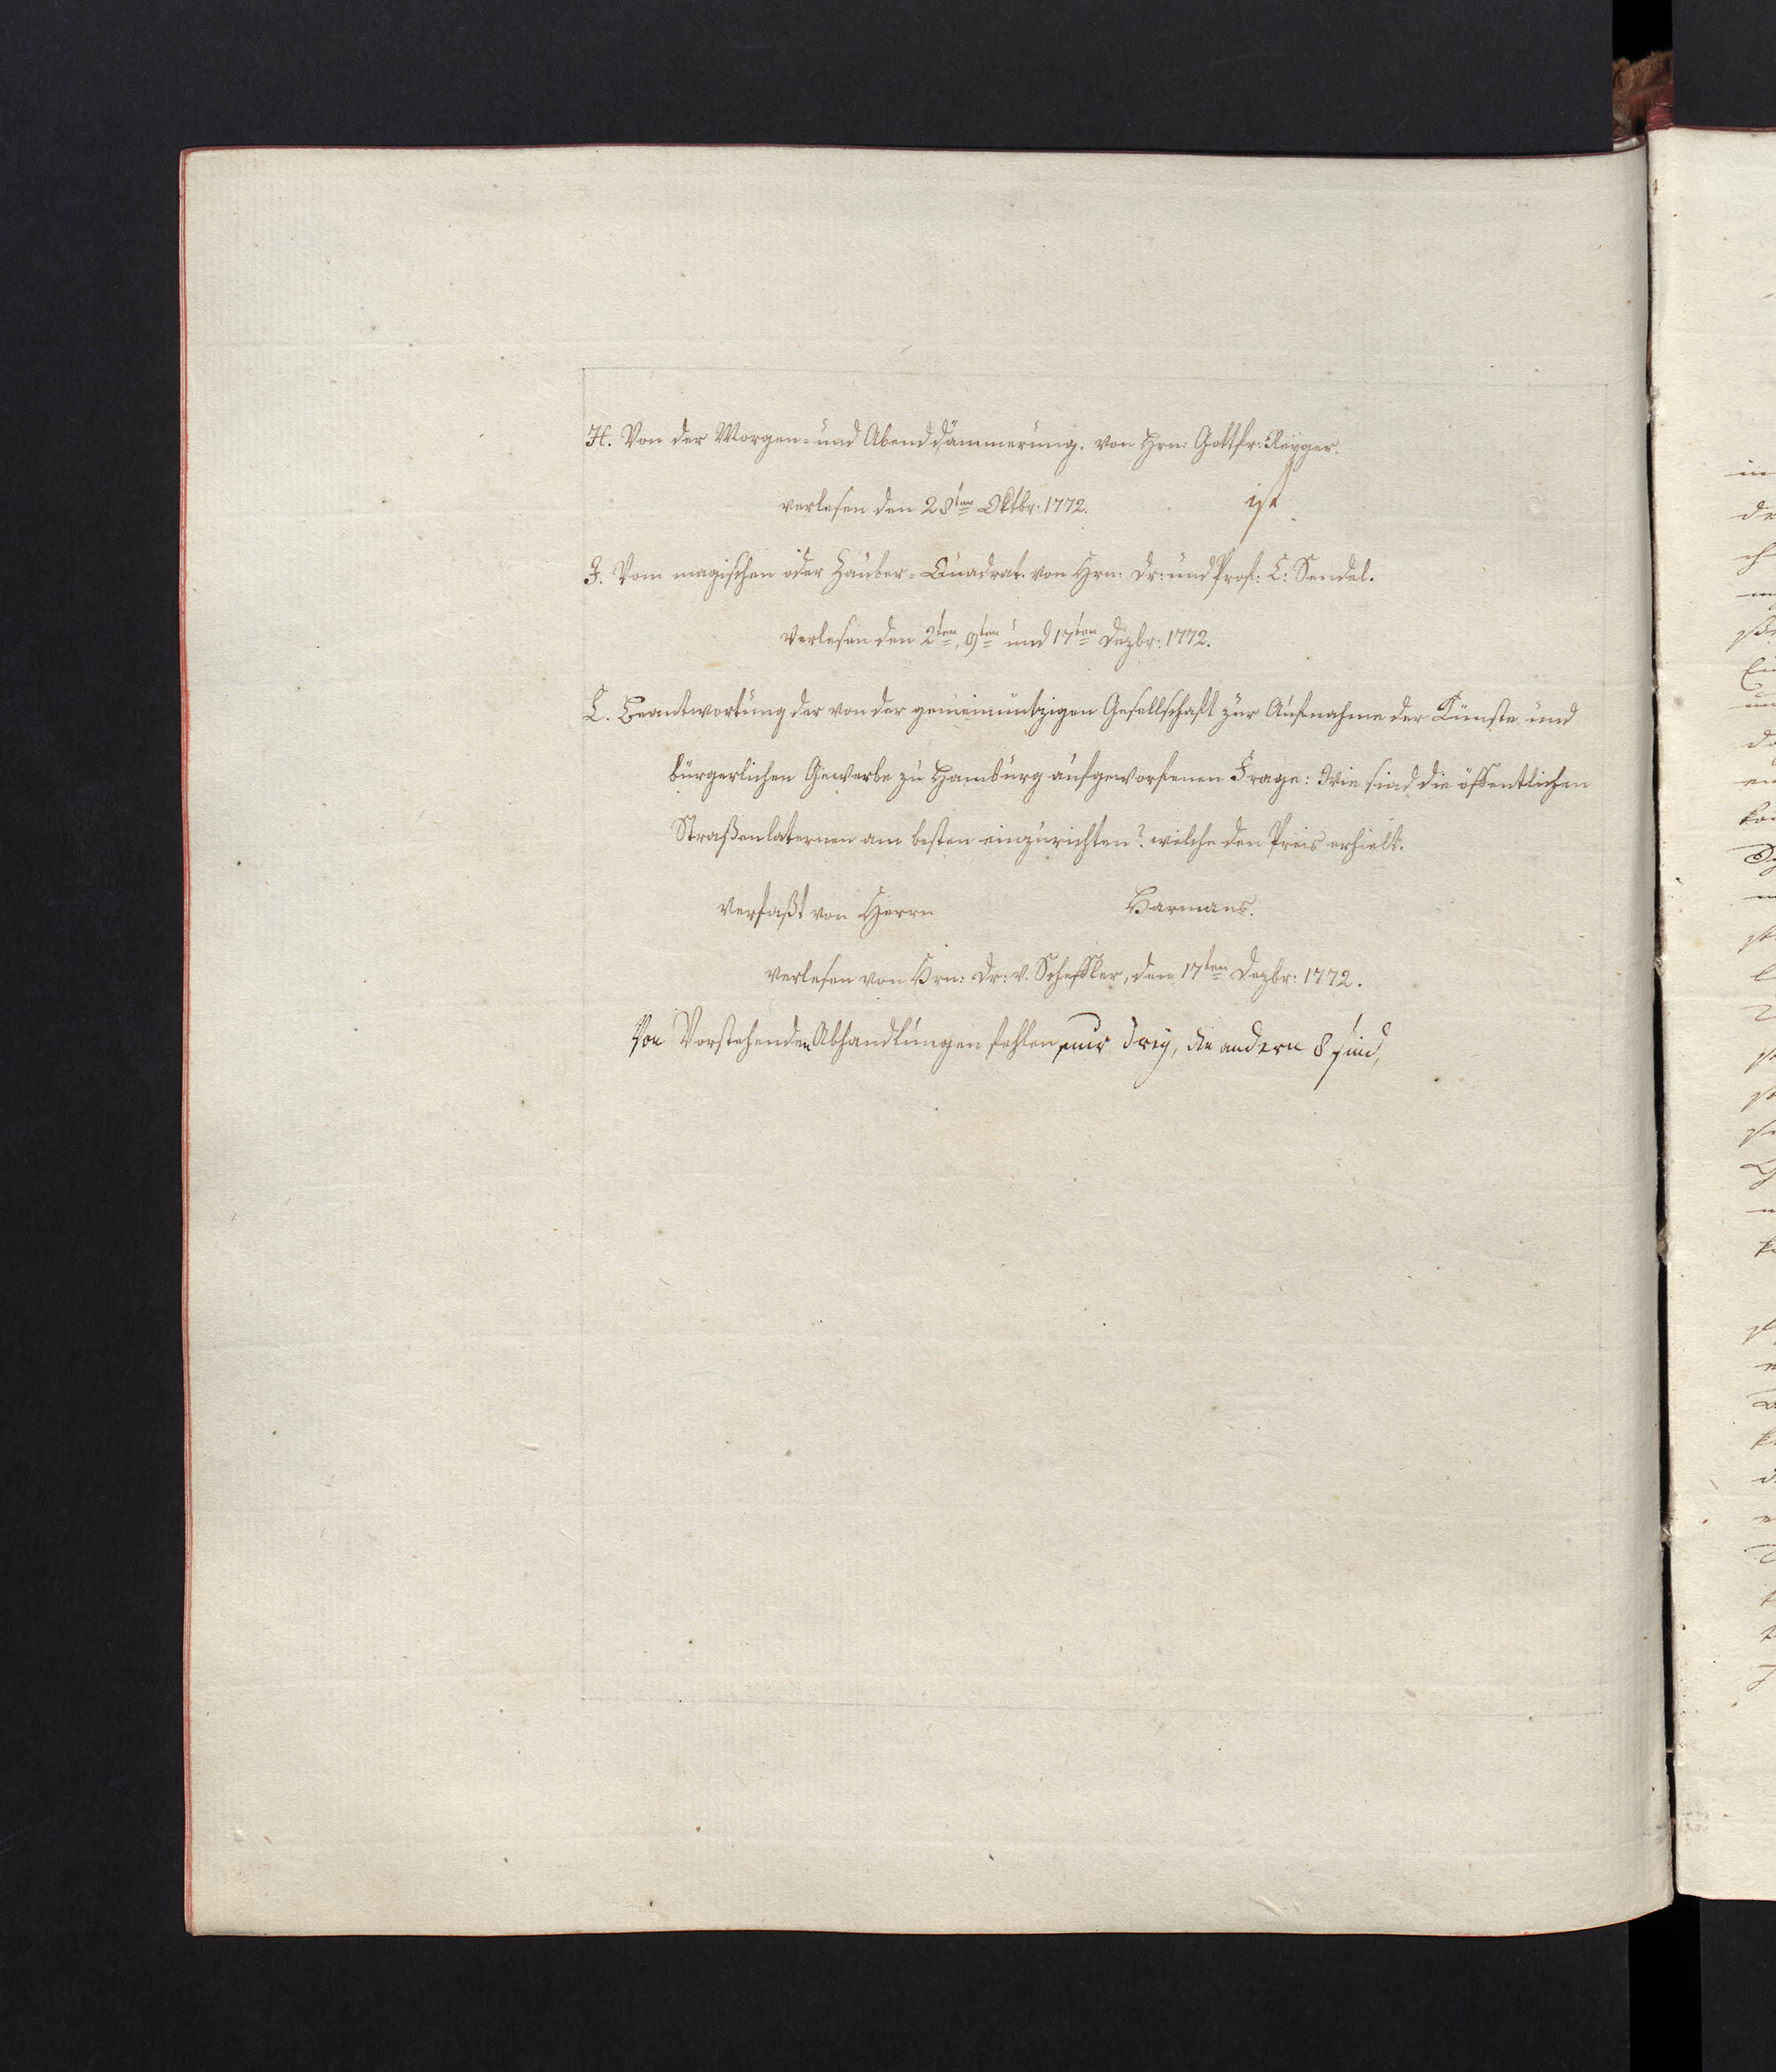 H. Von der Morgen- und Abenddämmerung. von Hrn: Gottfr: Reyger.
verlesen den 28ten Oktbr: 1772. ist
I. Vom magischen oder Zauber-Quadrat von Hrn: Dr: und Prof: C: Sendel.
verlesen den 2ten, 9ten und 17ten Dezbr: 1772.
L. Beantwortung der von der gemeinnützigen Gesellschaft zur Aufnahme der Künste und
bürgerlichen Gewerbe zu Hamburg aufgeworfenen Frage: Wie sind die öffentlichen
Straßenlaternen am besten einzurichten? welche den Preis erhielt.
verfaßt von Herrn Harmans.
verlesen von Hrn: Dr: v. Scheffler, den 17ten Dezbr: 1772.
Von Vorstehenden Abhandlungen fehlen nur drey, die andern 8 sind,